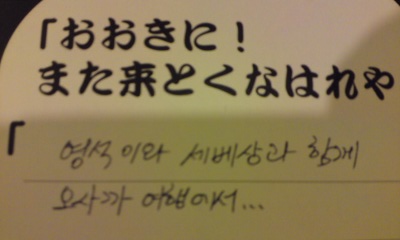 「おおきに!
また来とくなはれや
「 영석이와 세베상과 함께
오사까 여행에서...